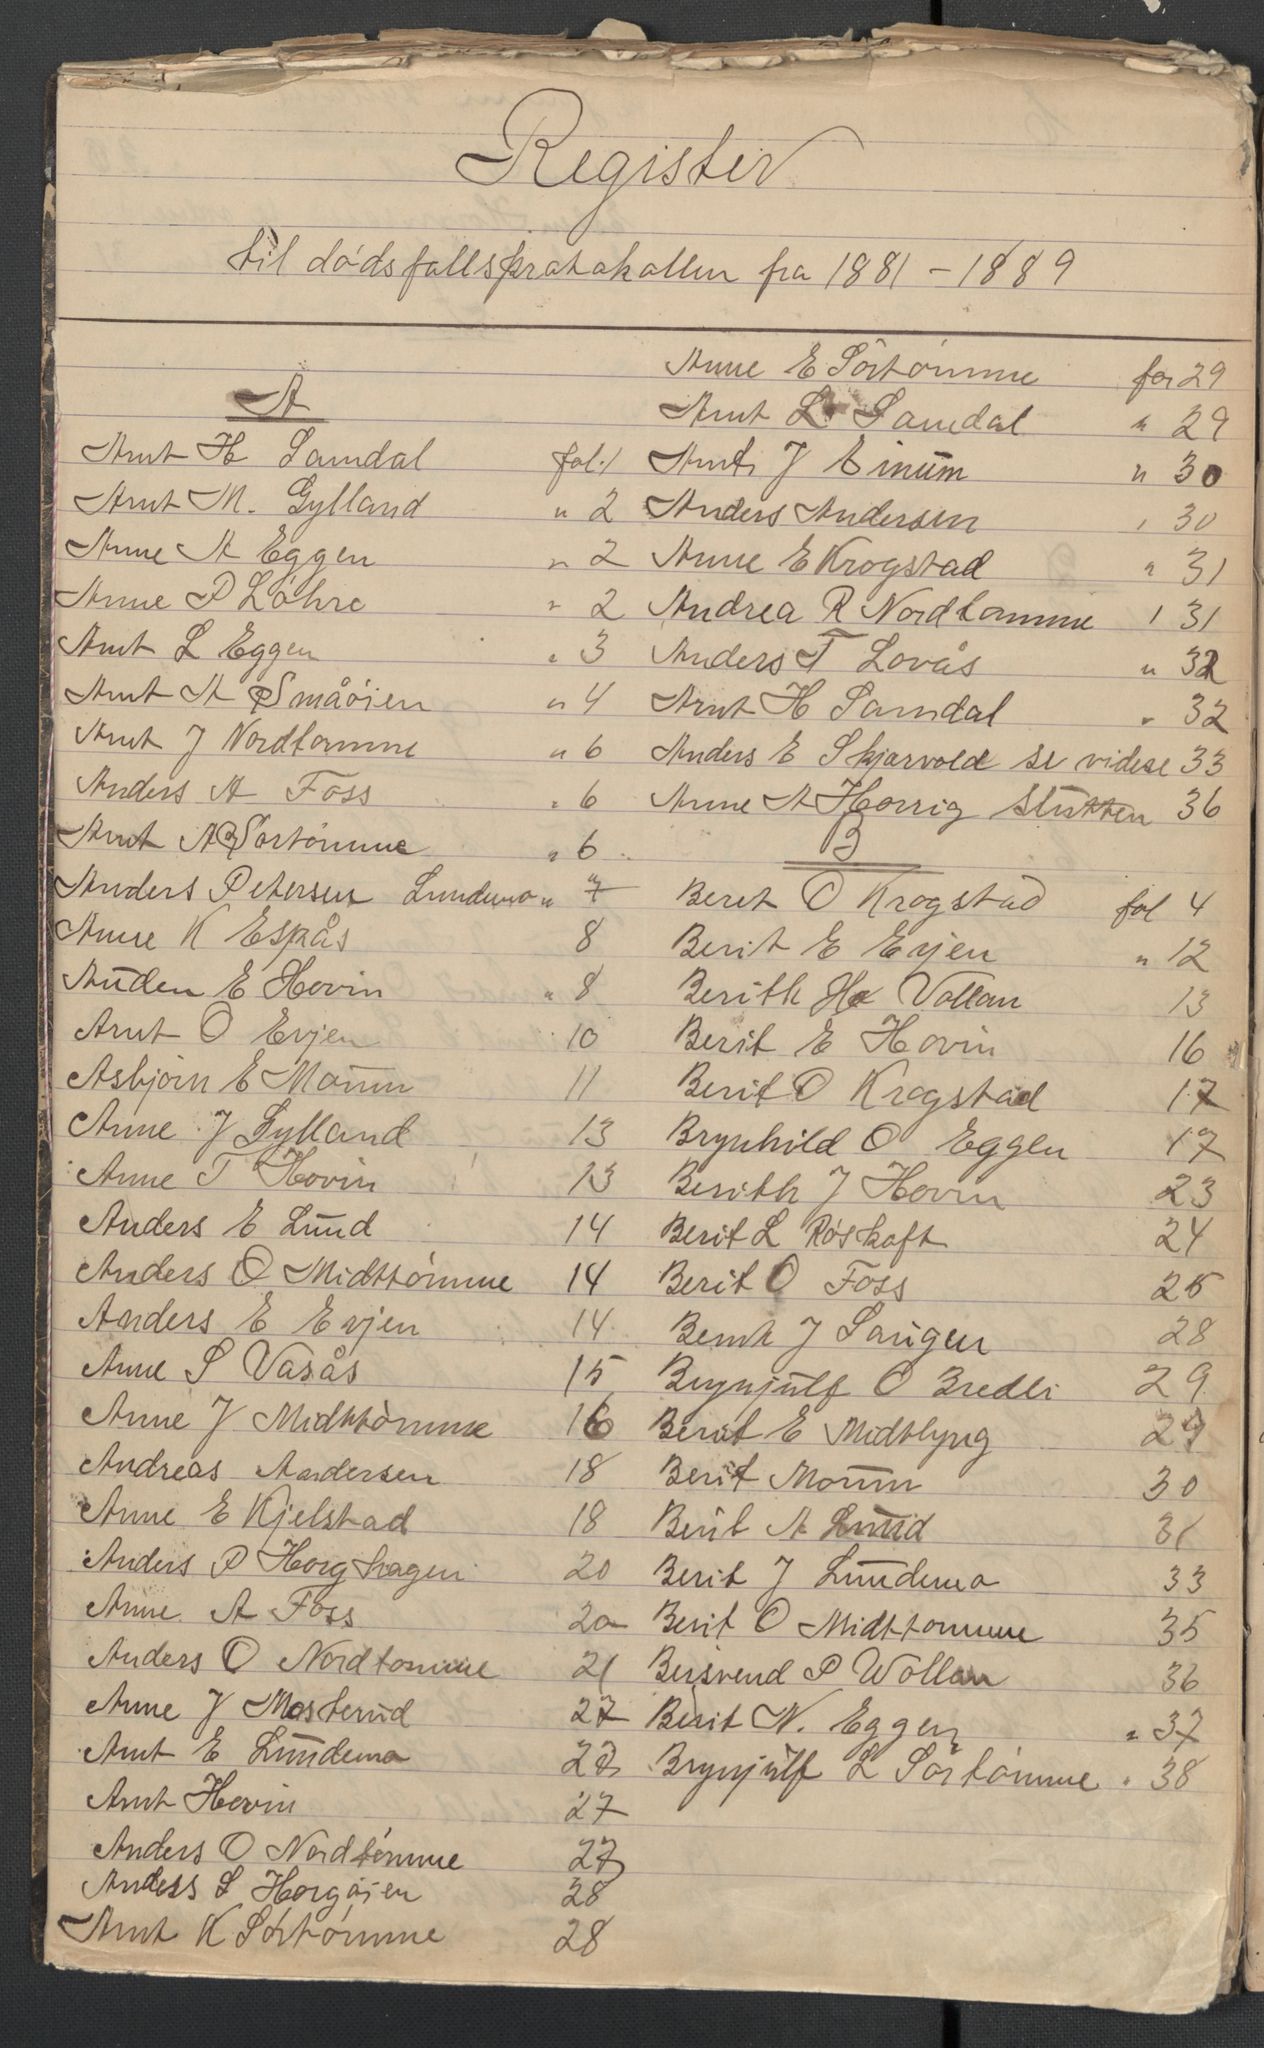 Register
til dødsfallsprotokollen fra 1881 - 1889
A
Arnt H Samdal fol. 1
Arnt M. Gylland " 2
Anne A Eggen " 2
Anne P Løhre " 2
Arnt L Eggen " 3
Arnt A Småöien " 4
Arnt J Nordtömme " 6
Anders A Foss " 6
Arnt A Sörtömme " 6
Anders Petersen Lundemo " 7
Anne K Espås 8
Auden E Hovin " 8
Arnt O Evjen 10
Asbjörn E Moum 11
Anne J Gylland 13
Anne T Hovin 13
Anders E Lund 14
Anders O Midttömme 14
Anders E Evjen 14
Anne S Vasås 15
Anne J Midttömme 16
Andreas Andersen 18
Anne E Kjelstad 18
Anders P Horghagen 20
Anne A Foss 20
Anders O Nordtömme 21
Anne J Mosterud 27
Arnt E Lundemo
Arnt Hovin 27
Anders O Nordtömme 27
Anders L Horgöien 28
Arnt K Sörtömme 28
Anne E Sörtömme fol 29
Arnt L Samdal " 29
Arnt J Einum " 30
Anders Andersen " 30
Anne E Krogstad " 31
Andrea R Nordtömme " 31
Anders T Lovås " 32
Arnt H Samdal " 32
Anders E Skjarvold se videre 33
Anne A Horrig slutten 36
B
Beret O Krogstad fol 4
Berit E Evjen " 12
Berith H Vollan 13
Berit E Hovin 16
Berit O Krogstad 17
Brynhild O Eggen 17
Berith J Hovin 23
Berit L Röskaft 24
Berit O Foss 25
J Langen 28
Brynjulf O Bredli 29
Berit E Midtlyng 29
Berit Moum 30
Berit A Lund 31
Berit J Lundemo 33
Berit O Midttömme 35
Bersvend P Wollan 36
Berit N. Eggen " 37
Brynjulf L Sörtömme " 38